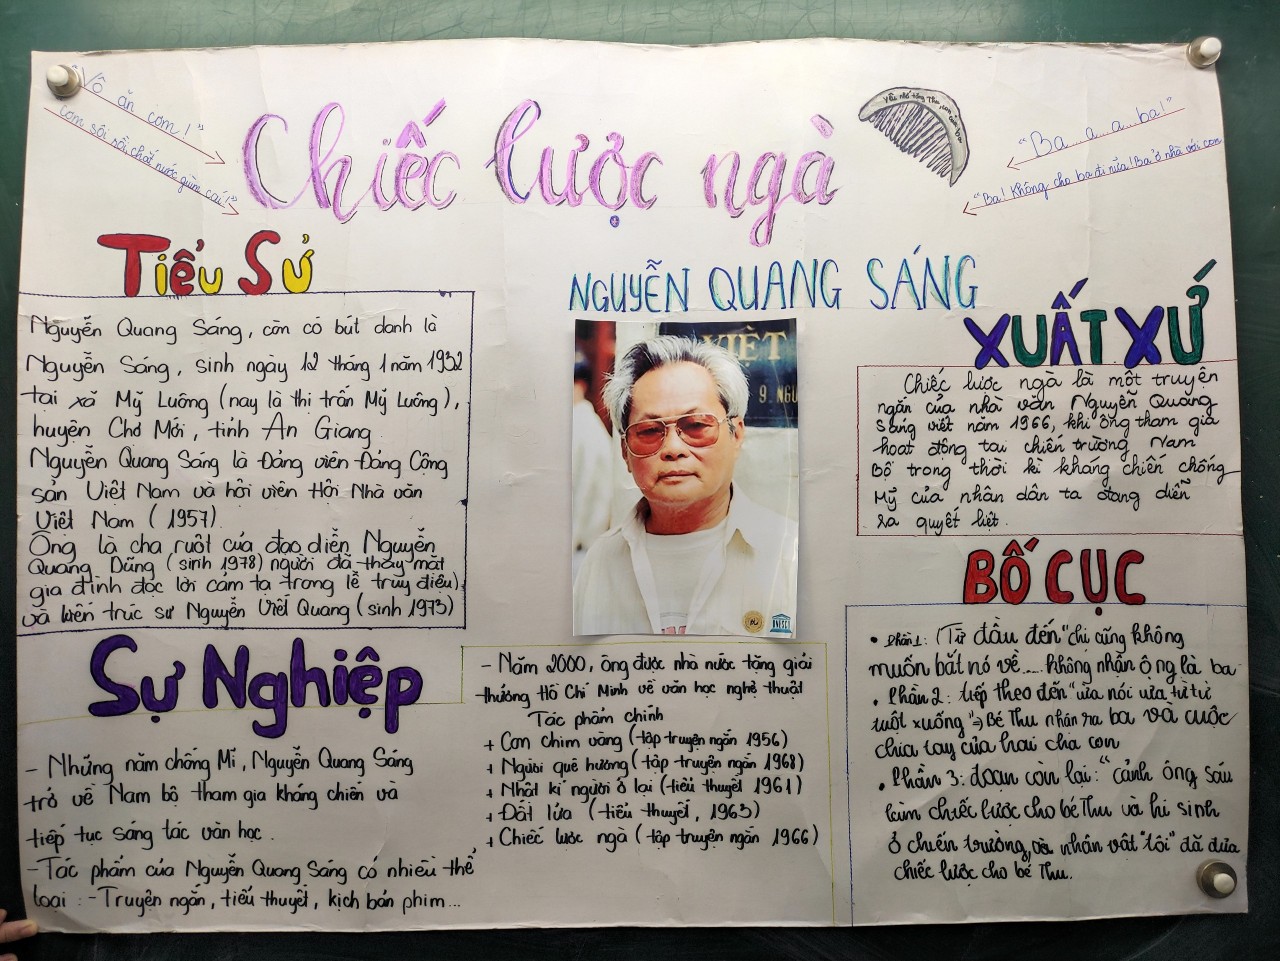 "Vô ăn cơm!"
Cơm sôi rồi, chắt nước giùm cái!"
Chiếc lược ngà
Yêu nhớ tặng Thu, con của ba
"Ba...a...a...ba!"
"Ba! Không cho ba đi nữa! Ba ở nhà với con
NGUYỄN QUANG SÁNG
VIỆT
9. NGU
Tiểu Sử
Nguyễn Quang Sáng, còn có bút danh là
Nguyễn Sáng, sinh ngày 12 tháng 1 năm 1932
tại xã Mỹ Luông (nay là thị trấn Mỹ Luông),
huyện Chợ Mới, tỉnh An Giang.
Nguyễn Quang Sáng là Đảng viên Đảng Cộng
sản Việt Nam và hội viên Hội Nhà văn
Việt Nam (1957).
Ông là cha ruột của đạo diễn Nguyễn
Quang Dũng (sinh 1978) người đã thay mặt
gia đình đọc lời cảm tạ trong lễ truy điệu)
và kiến trúc sư Nguyễn Việt Quang (sinh 1973)
Sự Nghiệp
- Những năm chống Mĩ, Nguyễn Quang Sáng
trở về Nam bộ tham gia kháng chiến và
tiếp tục sáng tác văn học.
- Tác phẩm của Nguyễn Quang Sáng có nhiều thể
loại: - Truyện ngắn, tiểu thuyết, kịch bản phim...
- Năm 2000, ông được nhà nước tặng giải
thưởng Hồ Chí Minh về văn học nghệ thuật
Tác phẩm chính
+ Con chim vàng (tập truyện ngắn 1956)
+ Người quê hương (tập truyện ngắn 1968)
+ Nhật kí người ở lại (tiểu thuyết 1961)
+ Đất lửa (tiểu thuyết, 1963)
+ Chiếc lược ngà (tập truyện ngắn 1966)
XUẤT XỨ
Chiếc lược ngà là một truyện
ngắn của nhà văn Nguyễn Quang
Sáng viết năm 1966, khi ông tham gia
hoạt động tại chiến trường Nam
Bộ trong thời kì kháng chiến chống
Mỹ của nhân dân ta đang diễn
ra quyết liệt.
BỐ CỤC
• Phần 1: (Từ đầu đến "chị cũng không
muốn bắt nó về.... không nhận ông là ba
• Phần 2: tiếp theo đến "vừa nói vừa từ từ
tuột xuống" => Bé Thu nhận ra ba và cuộc
chia tay của hai cha con
• Phần 3: đoạn còn lại: "cảnh ông sáu
làm chiếc lược cho bé Thu và hi sinh
ở chiến trường, và nhân vật "tôi" đã đưa
chiếc lược cho bé Thu.